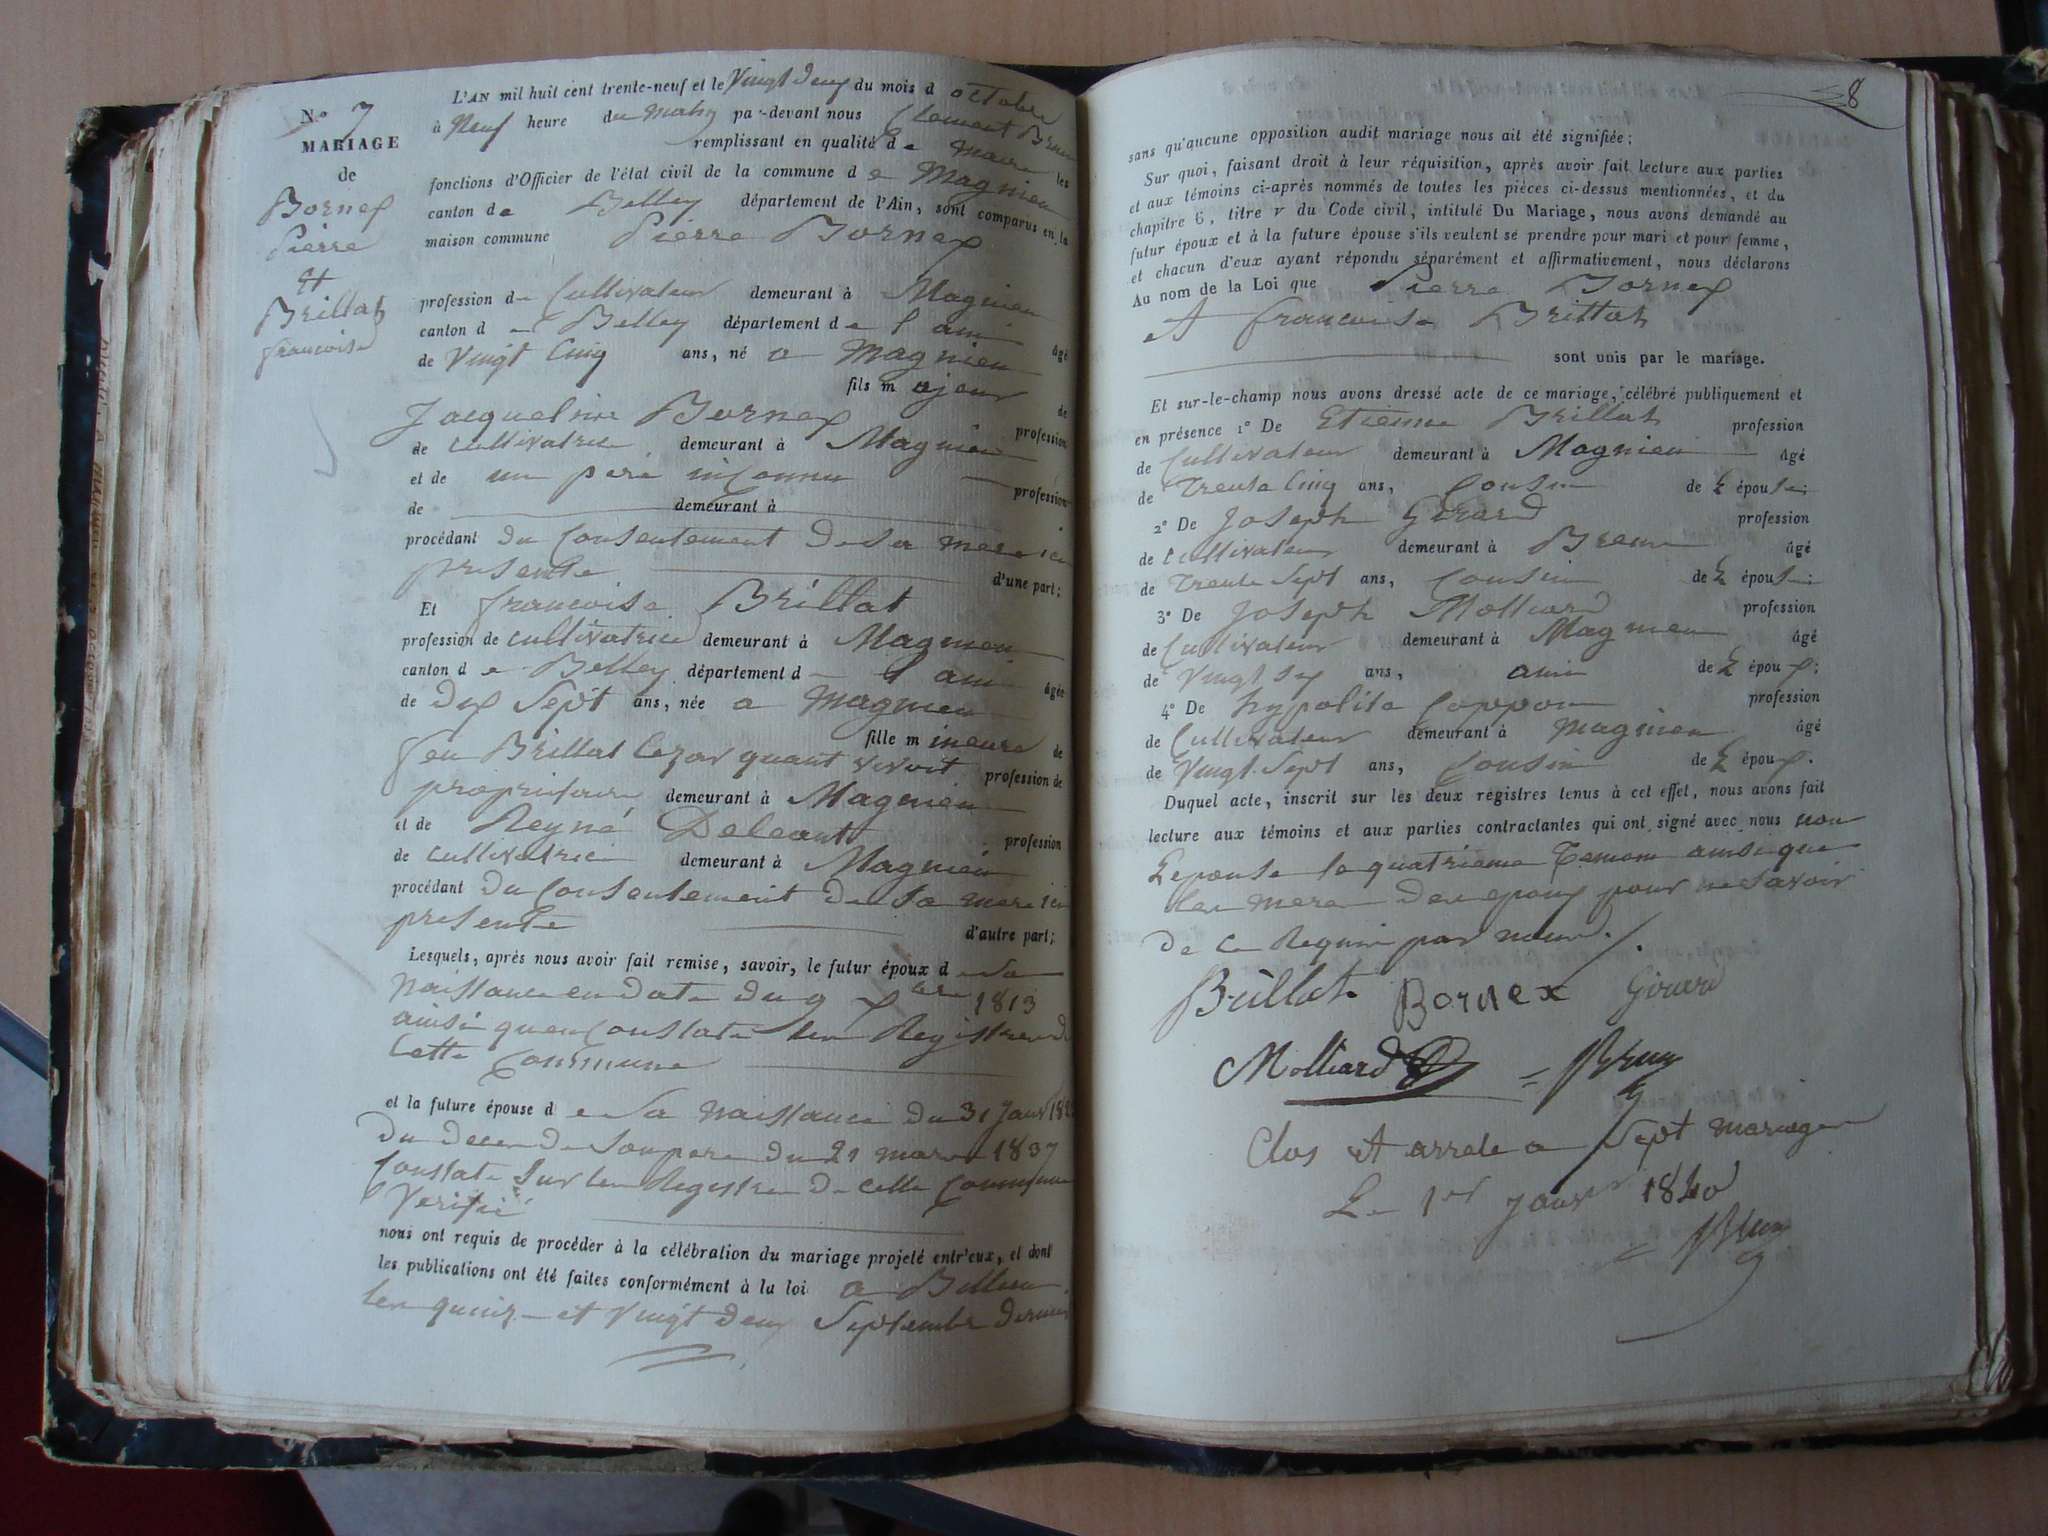 No 7
MARIAGE
de
Bornex
Pierre
et
Brillat
francoise
L'AN mil huit cent trente-neuf et le Vingt deux du mois d octobre
à Neuf heure du matin par-devant nous Clement Brun
remplissant en qualité de Maire les
fonctions d'Officier de l'état civil de la commune d e Magnieu
canton de Belley département de l'Ain, sont comparus en la
maison commune Pierre Bornex
profession de Cultivateur demeurant à Magnieu
canton d e Belley département de l ain âgé
de Vingt Cinq ans, né a Magnieu
fils majeur de
Jacqueline Bornex profession
de cultivatrice demeurant à Magnieu
et de un pere inconnu profession
de demeurant à
procédant du Consentement de sa mere ici
presente d'une part;
Et francoise Brillat
profession de cultivatrice demeurant à Magnieu
canton d e Belley département d l ain âgée
de Dix Sept ans, née a Magnieu
fille mineure de
feu Brillat Cezar quant vivoit profession de
proprietaire demeurant à Magnieu
et de Reyné profession
de cultivatrice demeurant à Magnieu
procédant du Consentement de Sa mere ici
presente d'autre part;
Lesquels, après nous avoir fait remise, savoir, le futur époux d e Sa
Naissance en Date du 9 1813
ainsi quen Constate les Registres de
Cette Commune
et la future épouse d e Sa Naissance du 31 Janv
du deces de Son pere du 21 mars 1837
Constate Sur les Registres de cette Commune
Verifié
nous ont requis de procéder à la célébration du mariage projeté entr'eux, et dont
les publications ont été faites conformément à la loi a
les quinze et Vingt deux Septembre dernier
8
sans qu'aucune opposition audit mariage nous ait été signifiée;
Sur quoi, faisant droit à leur réquisition, après avoir fait lecture aux parties
et aux témoins ci-après nommés de toutes les pièces ci-dessus mentionnées, et du
chapitre 6, titre v du Code civil, intitulé Du Mariage, nous avons demandé au
futur époux et à la future épouse s'ils veulent se prendre pour mari et pour femme,
et chacun d'eux ayant répondu séparément et affirmativement, nous déclarons
Au nom de la Loi que Pierre Bornex
et francoise Brillat
sont unis par le mariage.
Et sur-le-champ nous avons dressé acte de ce mariage, célébré publiquement et
en présence 1° De Etienne Brillat profession
de Cultivateur demeurant à Magnieu âgé
de Trente Cinq ans, Cousin de L épouse;
2° De Joseph Girard profession
de Cultivateur demeurant à Brens âgé
de Trente Sept ans, Cousin de L épouse;
3° De Joseph Molliard profession
de Cultivateur demeurant à Magnieu âgé
de Vingt Six ans, ami de L époux;
4° De hypolite Coppon profession
de Cultivateur demeurant à Magnieu âgé
de Vingt Sept ans, Cousin de L époux.
Duquel acte, inscrit sur les deux registres tenus à cet effet, nous avons fait
lecture aux témoins et aux parties contractantes qui ont signé avec nous non
Lepouse le quatrieme Temoin ainsi que
les meres des epoux pour ne Savoir
de ce Requis par nous.
Brillat Bornex Girard
Molliard Brun
Clos et arrete a Sept mariages
Le 1er Janvier 1840
Brun